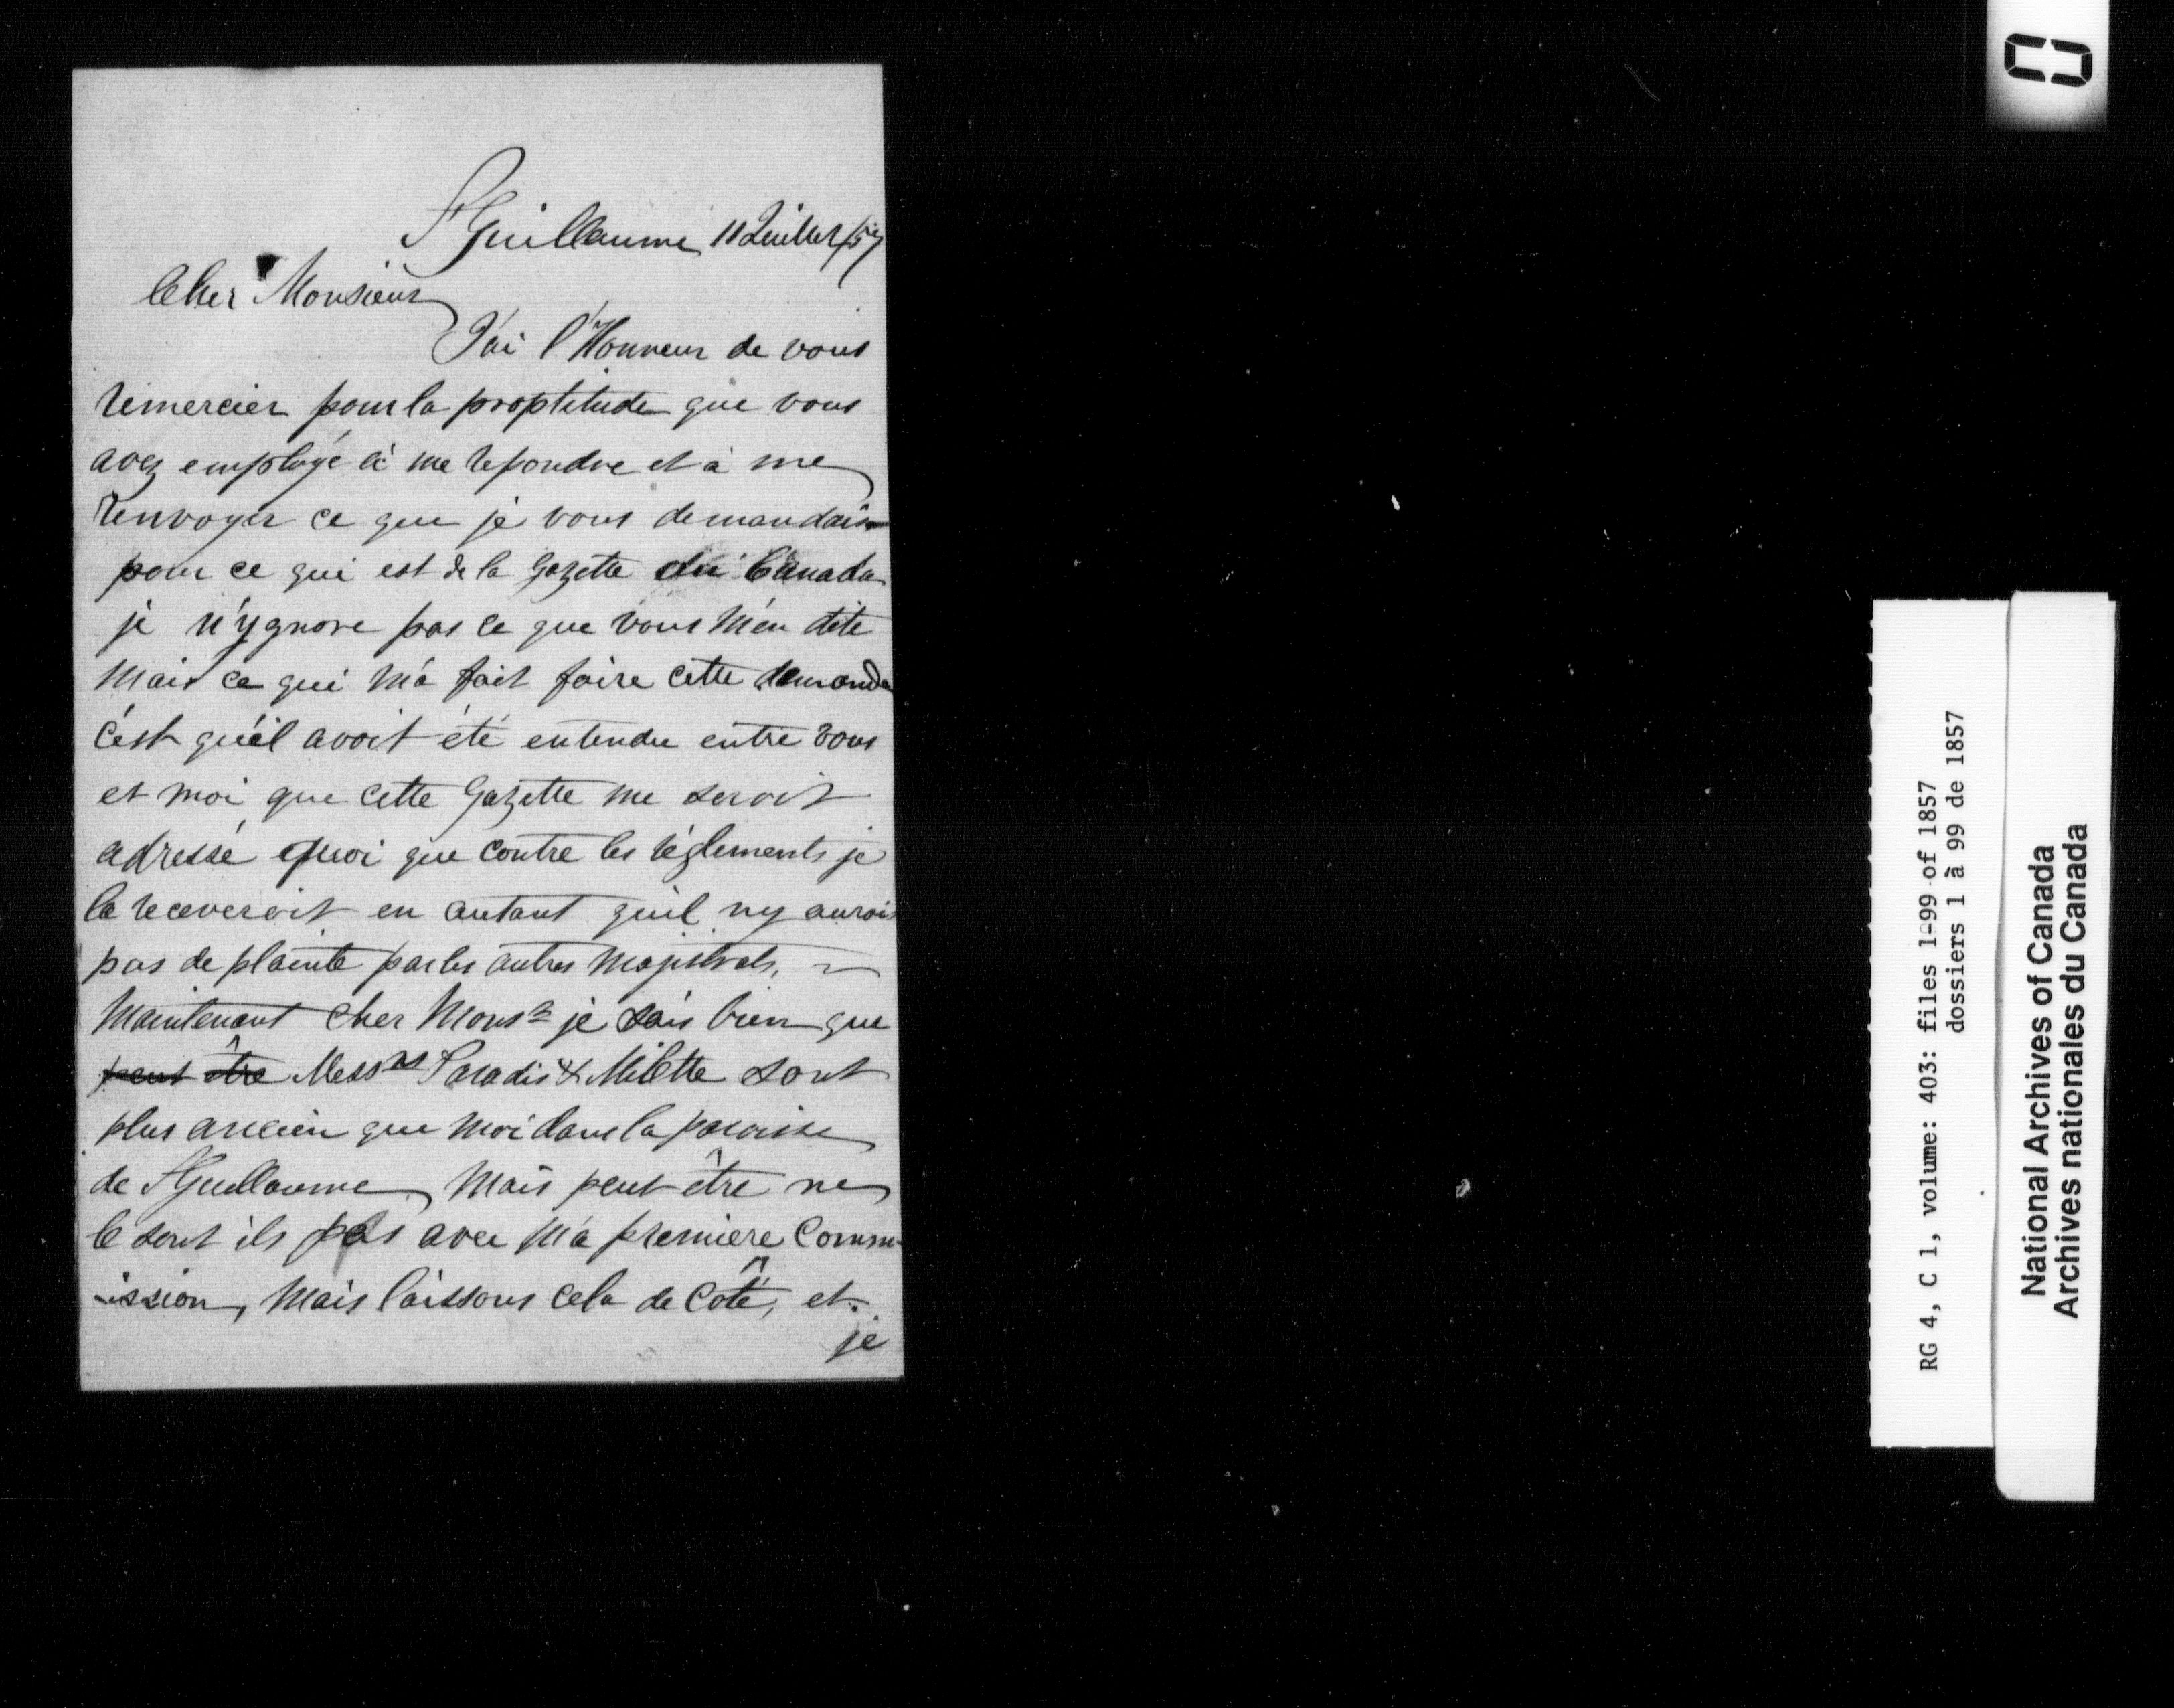 St Guillaume 11 Juillet /57
Cher Monsieur
J'ai l'Honneur de vous
remercier pour la proptitude que vous
avez employé à me repondre et à me
renvoyer ce que je vous demandais
pour ce qui est de la Gazette du Canada
je n'ygnore pas ce que vous m'en dite
mais ce qui m'a fait faire cette demande
c'est qu'il avoit été entendu entre vous
et moi que cette Gazette me seroit
adressé quoi que contre les règlements je
la receveroit en autant qu'il ny auroit
pas de plainte par les autres Majistrats,
Maintenant cher Monsr je sais bien que
peut être Messrs Paradis & Milette sont
plus ancien que moi dans la paroisse
de St Guillaume, mais peut être ne
le sont ils pas avec m'a premiere Comm-
-ission, mais laissons cela de coté, et
je
RG 4, C 1, volume: 403: files 1-99 of 1857
dossiers 1 à 99 de 1857
National Archives of Canada
Archives nationales du Canada